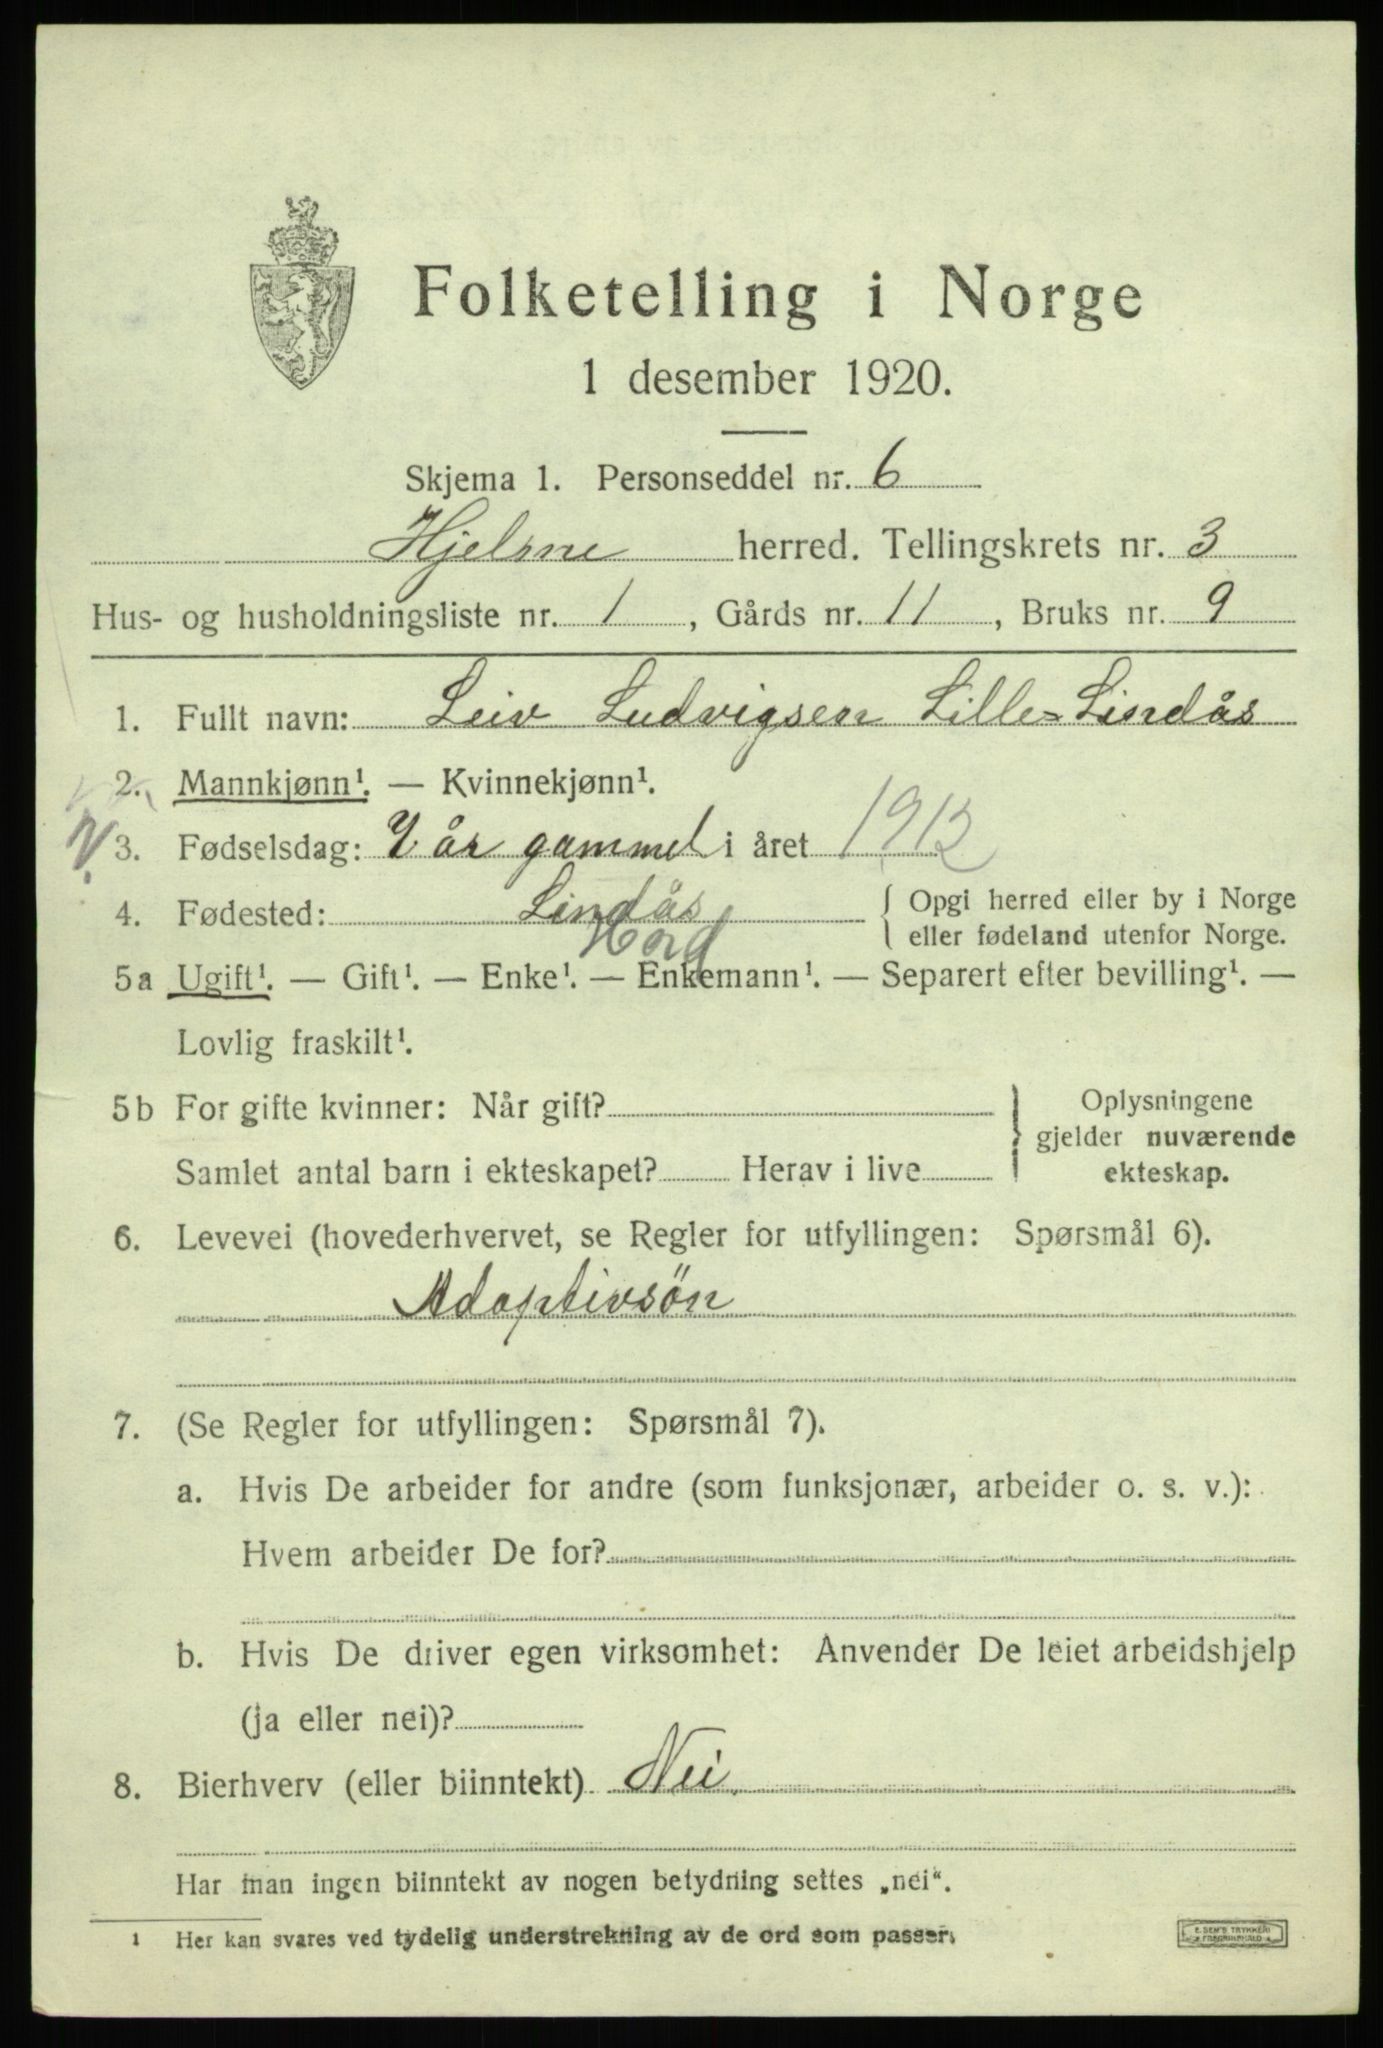 Folketelling i Norge
1 desember 1920.
Skjema 1. Personseddel nr. 6
Hjelme herred. Tellingskrets nr. 3
Hus- og husholdningsliste nr. 1, Gårds nr. 11, Bruks nr. 9
1. Fullt navn: Leiv Ludvigsen Lille-Lindås
2. Mannkjønn¹. — Kvinnekjønn¹.
3. Fødselsdag: 7 år gammel i året 1912
4. Fødested: Lindås { Opgi herred eller by i Norge
eller fødeland utenfor Norge.
Hord
5a Ugift¹. — Gift¹. — Enke¹. — Enkemann¹. — Separert efter bevilling¹. —
Lovlig fraskilt¹.
5b For gifte kvinner: Når gift? } Oplysningene
gjelder nuværende
Samlet antal barn i ekteskapet? Herav i live ekteskap.
6. Levevei (hovederhvervet, se Regler for utfyllingen: Spørsmål 6).
Adoptivsön
7. (Se Regler for utfyllingen: Spørsmål 7).
a. Hvis De arbeider for andre (som funksjonær, arbeider o. s. v.):
Hvem arbeider De for?
b. Hvis De driver egen virksomhet: Anvender De leiet arbeidshjelp
(ja eller nei)?
8. Bierhverv (eller biinntekt) Nei
Har man ingen biinntekt av nogen betydning settes „nei“.
1 Her kan svares ved tydelig understrekning av de ord som passer.
E. SEM'S TRYKKERI
FREDRIKSHALD